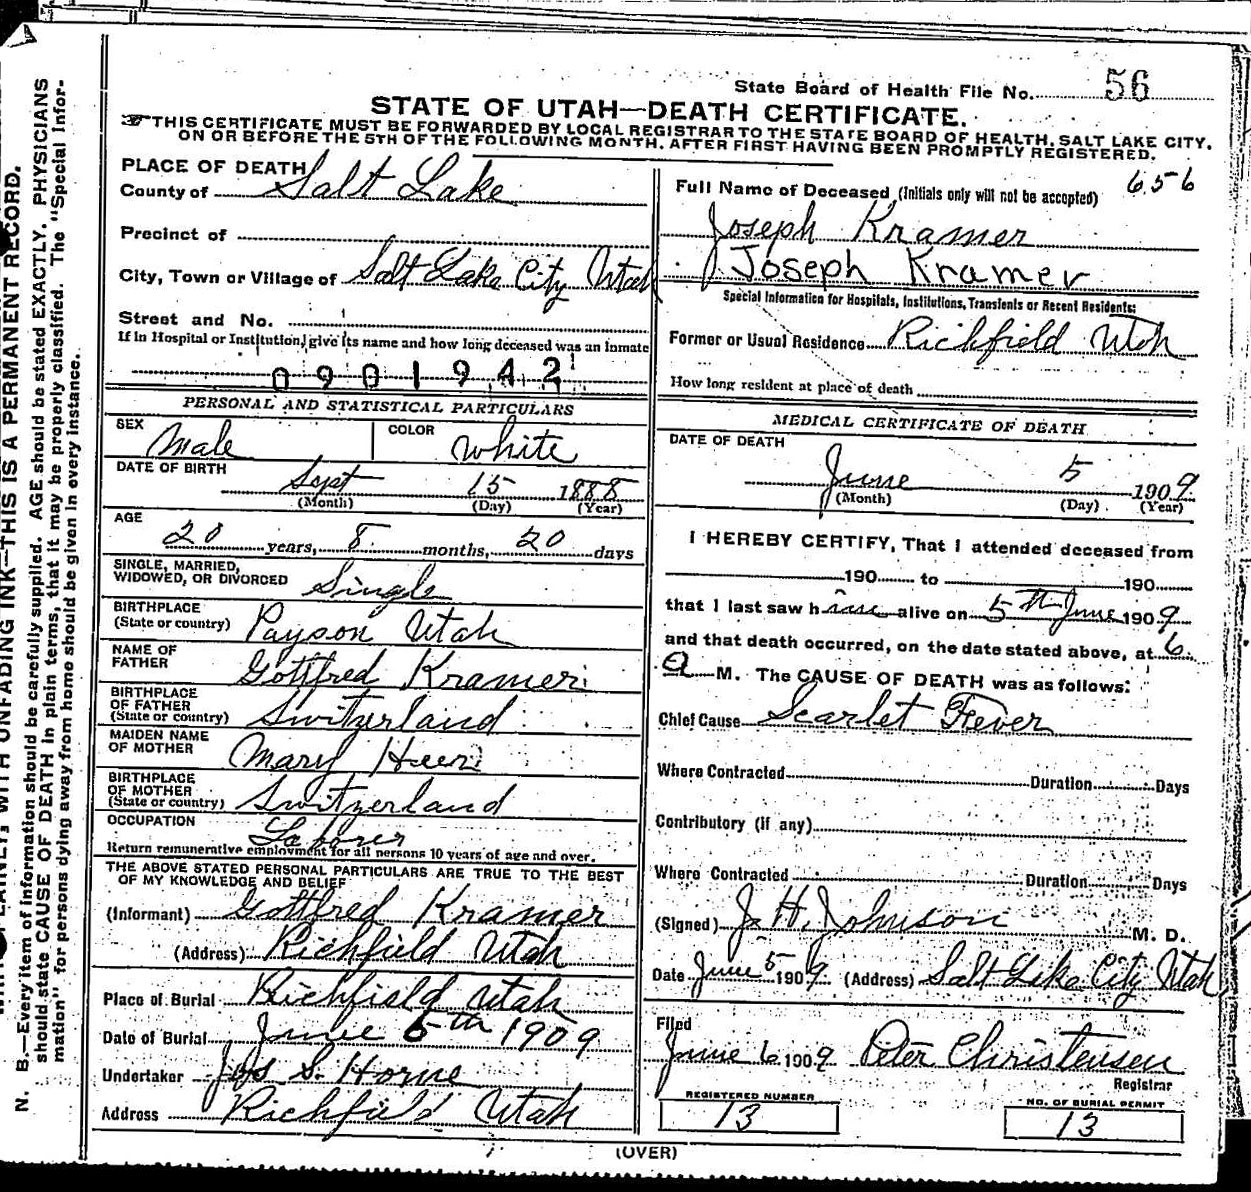 State Board of Health File No. 56
STATE OF UTAH—DEATH CERTIFICATE.
THIS CERTIFICATE MUST BE FORWARDED BY LOCAL REGISTRAR TO THE STATE BOARD OF HEALTH, SALT LAKE CITY,
ON OR BEFORE THE 5TH OF THE FOLLOWING MONTH, AFTER FIRST HAVING BEEN PROMPTLY REGISTERED.
PLACE OF DEATH
County of Salt Lake
Precinct of
City, Town or Village of Salt Lake City Utah
Street and No.
If in Hospital or Institution, give its name and how long deceased was an inmate
0901942
PERSONAL AND STATISTICAL PARTICULARS
SEX Male COLOR White
DATE OF BIRTH Sept 15 1888
(Month) (Day) (Year)
AGE
20 years, 8 months, 20 days
SINGLE, MARRIED,
WIDOWED, OR DIVORCED Single
BIRTHPLACE
(State or country) Payson Utah
NAME OF
FATHER Gottfred Kramer
BIRTHPLACE
OF FATHER
(State or country) Switzerland
MAIDEN NAME
OF MOTHER Mary
BIRTHPLACE
OF MOTHER
(State or country) Switzerland
OCCUPATION Laborer
Return remunerative employment for all persons 10 years of age and over.
THE ABOVE STATED PERSONAL PARTICULARS ARE TRUE TO THE BEST
OF MY KNOWLEDGE AND BELIEF
(Informant) Gottfred Kramer
(Address) Richfield Utah
Place of Burial Richfield Utah
Date of Burial June 6th 1909
Undertaker Jos S. Horne
Address Richfield Utah
656
Full Name of Deceased (Initials only will not be accepted)
Joseph Kramer
Joseph Kramer
Special Information for Hospitals, Institutions, Transients or Recent Residents:
Former or Usual Residence Richfield Utah
How long resident at place of death
MEDICAL CERTIFICATE OF DEATH
DATE OF DEATH
June 5 1909
(Month) (Day) (Year)
I HEREBY CERTIFY, That I attended deceased from
190 to 190
that I last saw h alive on 5th June 1909
and that death occurred, on the date stated above, at 6
a M. The CAUSE OF DEATH was as follows:
Chief Cause Scarlet Fever
Where Contracted Duration Days
Contributory (if any)
Where Contracted Duration Days
(Signed) J. H. Johnson M. D.
Date June 5 1909 (Address) Salt Lake City Utah
Filed
June 6 1909 Peter Christensen
Registrar
REGISTERED NUMBER
13
NO. OF BURIAL PERMIT
13
(OVER)
WITH UNFADING INK—THIS IS A PERMANENT RECORD.
N. B.—Every item of information should be carefully supplied. AGE should be stated EXACTLY. PHYSICIANS
should state CAUSE OF DEATH in plain terms, that it may be properly classified. The "Special Infor-
mation" for persons dying away from home should be given in every instance.